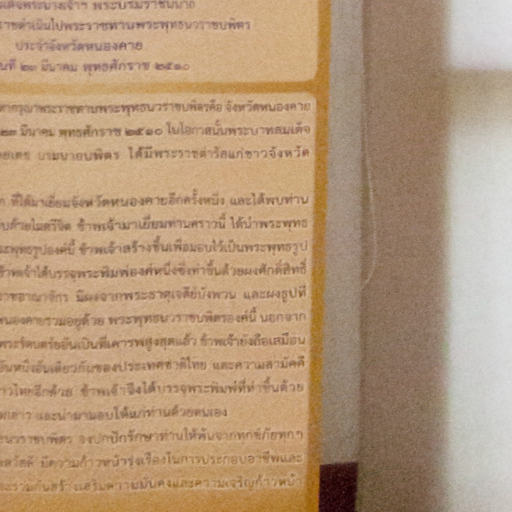 พระบรมราชินีนาถ
พระราชทานพระพุทธนวราชบพิตร
ประจำจังหวัดหนองคาย
วันที่ ๒๓ มีนาคม พุทธศักราช ๒๕๑๐
พระราชทานพระพุทธนวราชบพิตรคือ จังหวัดหนองคาย
๒๓ มีนาคม พุทธศักราช ๒๕๑๐ ในโอกาสนั้นพระบาทสมเด็จ
บรมนาถบพิตร ได้มีพระราชดำรัสแก่ชาวจังหวัด
ที่ได้มาเยี่ยมจังหวัดหนองคายอีกครั้งหนึ่ง และได้พบท่าน
ด้วยไมตรีจิต ข้าพเจ้ามาเยี่ยมท่านคราวนี้ ได้นำพระพุทธ
พระพุทธรูปองค์นี้ ข้าพเจ้าสร้างขึ้นเพื่อมอบไว้เป็นพระพุทธรูป
ข้าพเจ้าได้บรรจุพระพิมพ์องค์หนึ่งซึ่งทำขึ้นด้วยผงศักดิ์สิทธิ์
ราชอาณาจักร มีผงจากพระธาตุเจดีย์บังพวน และผงธูปที่
หนองคายรวมอยู่ด้วย พระพุทธนวราชบพิตรองค์นี้ นอกจาก
พระรัตนตรัยอันเป็นที่เคารพสูงสุดแล้ว ข้าพเจ้ายังถือเสมือน
อันหนึ่งอันเดียวกันของประเทศชาติไทย และความสามัคคี
ชาวไทยอีกด้วย ข้าพเจ้าจึงได้บรรจุพระพิมพ์ที่ทำขึ้นด้วย
และนำมามอบให้แก่ท่านด้วยตนเอง
นวราชบพิตร จงปกปักรักษาท่านให้พ้นจากทุกข์ภัยทุกๆ
สวัสดี มีความก้าวหน้ารุ่งเรืองในการประกอบอาชีพและ
ร่วมกันสร้างเสริมความมั่นคงและความเจริญก้าวหน้า